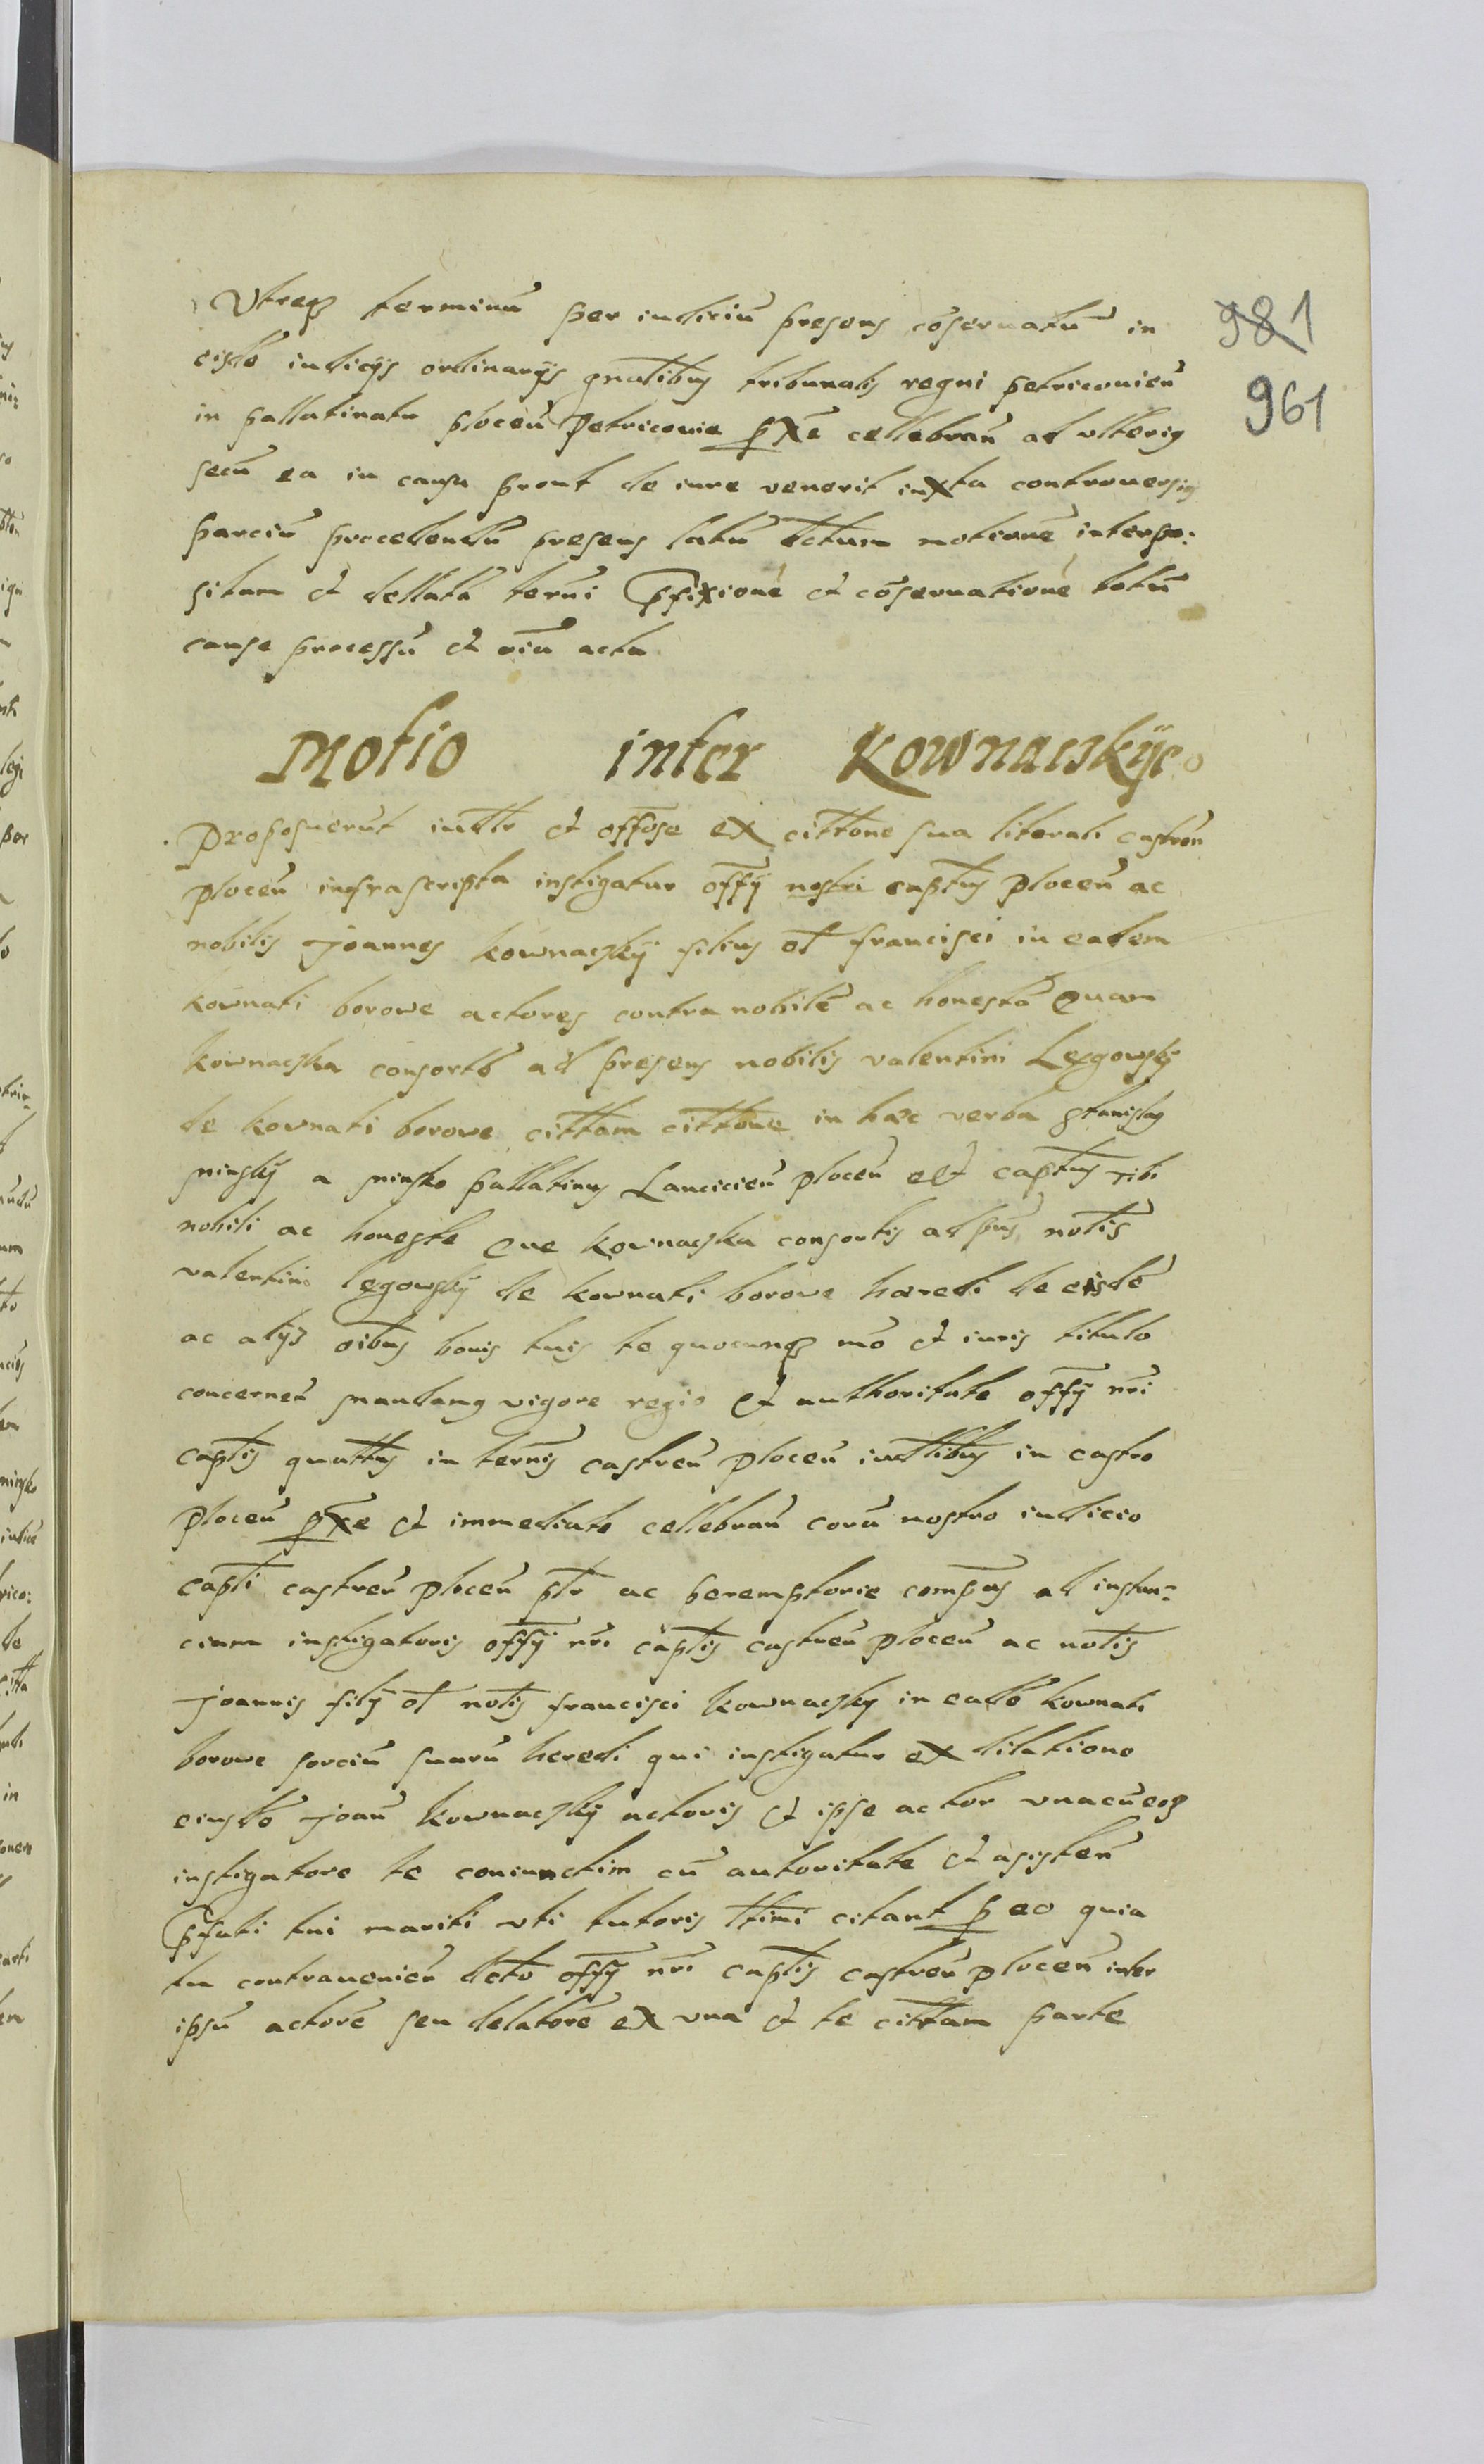 Vtreqz terminū per iudiciū presens cōseruatū in
eisdē iudicijs ordinarijs gnalibus tribunalis regni petricouien̄
in pallatinatu plocen̄ petricouie pxē cellebran̄ ad vlterius
secū ea in causa prout de iure venerit iuxta controuersias
parciū procedendū presens latū dctum motionē interpo:
situm et dellatā term̄i p̄fixionē et cōseruationē totū
cause processū et oīa acta
Motio inter Kownacskije
981
961
Proposuerūt iudtr et offōse ex cittone sua literali castren̄
plocen̄ infrascripta instigatur offȳ nostri captus plocen̄ ac
nobilis Joannes kownacskÿ filius ol francisci in eadem
kownati borowe actores contra nobilē ac honestā Euam
kownacska consortē ad presens nobilis valentini Legowskÿ
de kownati borowe cittam cittone in hæc verba Stanislaus
minskÿ a minsko pallatinus Lancicien̄ plocen̄ et captus Tibi
nobili ac honeste Eue kownacska consortis ad pn̄s nobtis
valentini legowskÿ de kownati borowe hæredi de eisdē
ac alijs oībus bonis tuis te quocunqz mō et iuris titulo
concernen̄ mandamus vigore regio et authoritate offȳ nrī
captis quattus in termis castren̄ plocen̄ iudlibus in castro
plocen̄ pxe et immediate cellebran̄ corā nostro iudicio
capti castren̄ plocen̄ ptr ac peremptorie compas ad instan=
ciam instigatoris offȳ nrī captis castren̄ plocen̄ ac nobtis
Joannis filÿ ol nobtis francisci kownacskÿ in eadē kownati
borowe sorciū suarū heredi qui instigatur ex dilatione
eiusdē Joan̄ kownacskÿ actoris et ipse actor vnacū eoqz
instigatore te coniunctim cū autoritate et asisten̄
p̄fati tui mariti vti tutoris ltimi citant p eo quia
tu contrauenien̄ dcto offȳ nrī captis castren̄ plocen̄ inter
ipsū actorē seu delatorē ex vna et te cittam parte